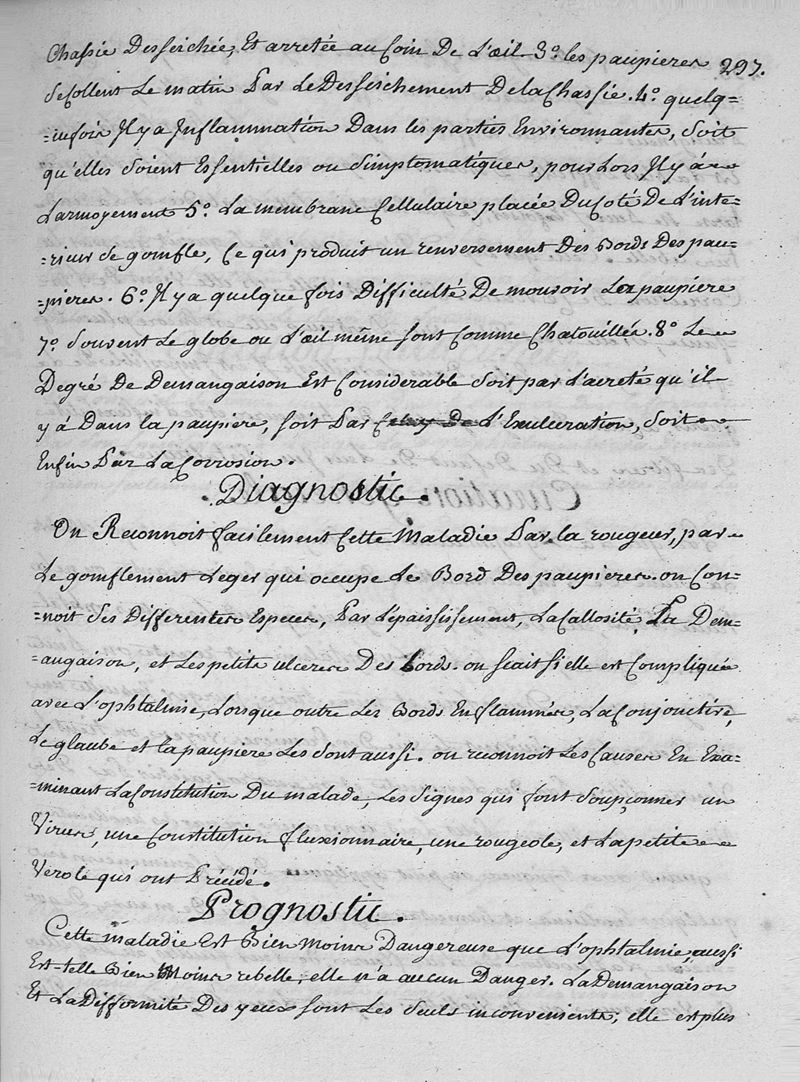 Chassie Desseichée, Et arretée au Coin De L'œil 3.° les paupieres 297.
se Collent Le matin Par Le Desseichement De la Chassie. 4.° quelq-
-uefois Il y a Inflammation Dans les parties Environnantes, soit
qu'elles soient Essentielles ou simptomatiques, pour Lors Il y á
Larmoyement 5.° La membrane Cellulaire placée Du Coté De L'inte-
-rieur se gomfle, Ce qui produit un renversement Des Bords Des pau-
-pieres. 6.° Il y a quelque fois Difficulté De mouvoir Les paupiere
7.° souvent Le globe ou L'œil même sont Comme Chatouillés. 8.° Le
Degré De Demangaison Est Considerable soit par L'acreté qu'il
y á Dans la paupiere, soit Par Celuy De L'Exulceration, soit
Enfin Par La Corrosion.
Diagnostic.
On Reconnoit facilement Cette Maladie Par la rougeur, par
Le gomflement Leger qui occupe Le Bord Des paupieres. on Con-
-noit ses Differentes Especes, Par L'épaississement, La Callosité, La Dem-
-augaison, et Les petits ulceres Des bords. on scait si elle est Compliquée
avec L'ophtalmie, Lorsque outre Les Bords Enflammés, La Conjonctive,
Le glaube et la paupiere Les sont aussi. on reconnoit Les Causes En Exa-
-minant La Constitution Du malade, Les signes qui font soupçonner un
Virus, une Constitution fluxionnaire, une rougeole, et La petite
Verole qui ont Précédé.
Prognostic.
Cette maladie Est Bien Moins Dangereuse que L'ophtalmie, aussi
Est-telle Bien Moins rebelle; elle n'a aucun Danger. La Demangaison
Et La Difformité Des yeux sont Les seuls inconvenients; elle est plus